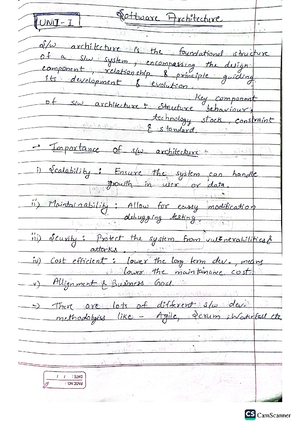 UNIT-I
Software Architecture
S/w architecture is the foundational structure
of a s/w system, encompassing the design
component relationship & principle guiding
its development & evolution.
Key component
of s/w architecture: Structure behaviour,
technology stack, constraint
& standard.
Importance of s/w architecture
i) Scalability: Ensure the system can handle
growth in user or data.
ii) Maintainability: Allow for easy modification
debugging testing.
iii) Security: Protect the system from vulnerabilities &
attacks.
iv) Cost efficient: lower the long term dev. means
lower the maintenance cost.
v) Allignment & Business Goal
There are lots of different s/w devl
methodologies like - Agile, Scrum, Waterfall etc
CS CamScanner